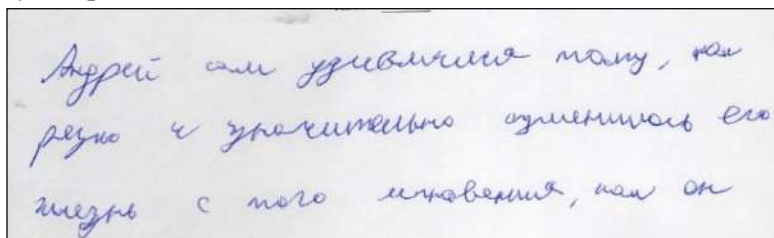 Андрей сам удивлялся тому, как
резко и значительно изменилось его
жизнь с того мгновения, как он